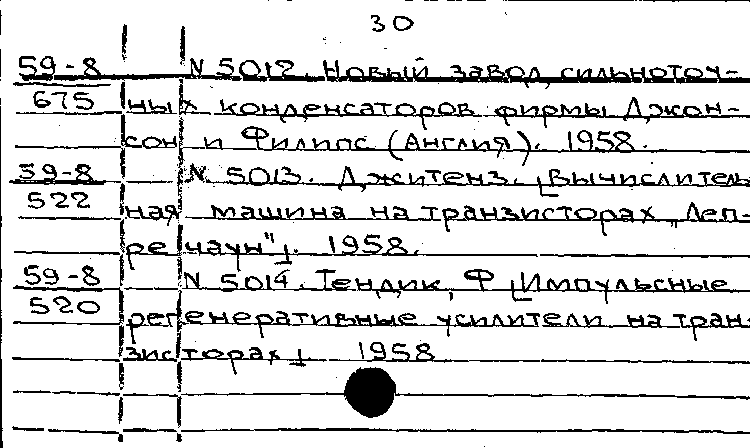 30
59-8 N 5012. Новый завод сильноточ-
675 ных конденсаторов фирмы Джон-
сон и Филипс (Англия). 1958.
59-8 N 5013. Джитенз. [Вычислитель
522 ная машина на транзисторах „Леп-
речаун"]. 1958.
59-8 N 5014. Тендик, Ф [Импульсные
520 регенеративные усилители на тран-
зисторах]. 1958